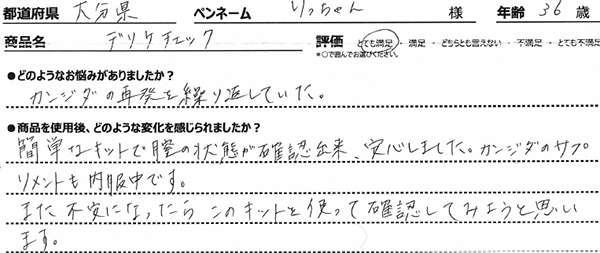 都道府県 大分県 ペンネーム りっちゃん 様 年齢 36 歳
商品名 デリケチェック 評価 とても満足 ・ 満足 ・ どちらとも言えない ・ 不満足 ・ とても不満足
*○で囲んでお選びください。
●どのようなお悩みがありましたか？
カンジダの再発を繰り返していた。
●商品を使用後、どのような変化を感じられましたか？
簡単なキットで膣の状態が確認出来、安心しました。カンジダのサプ
リメントも内服中です。
また不安になったらこのキットを使って確認してみようと思い
ます。